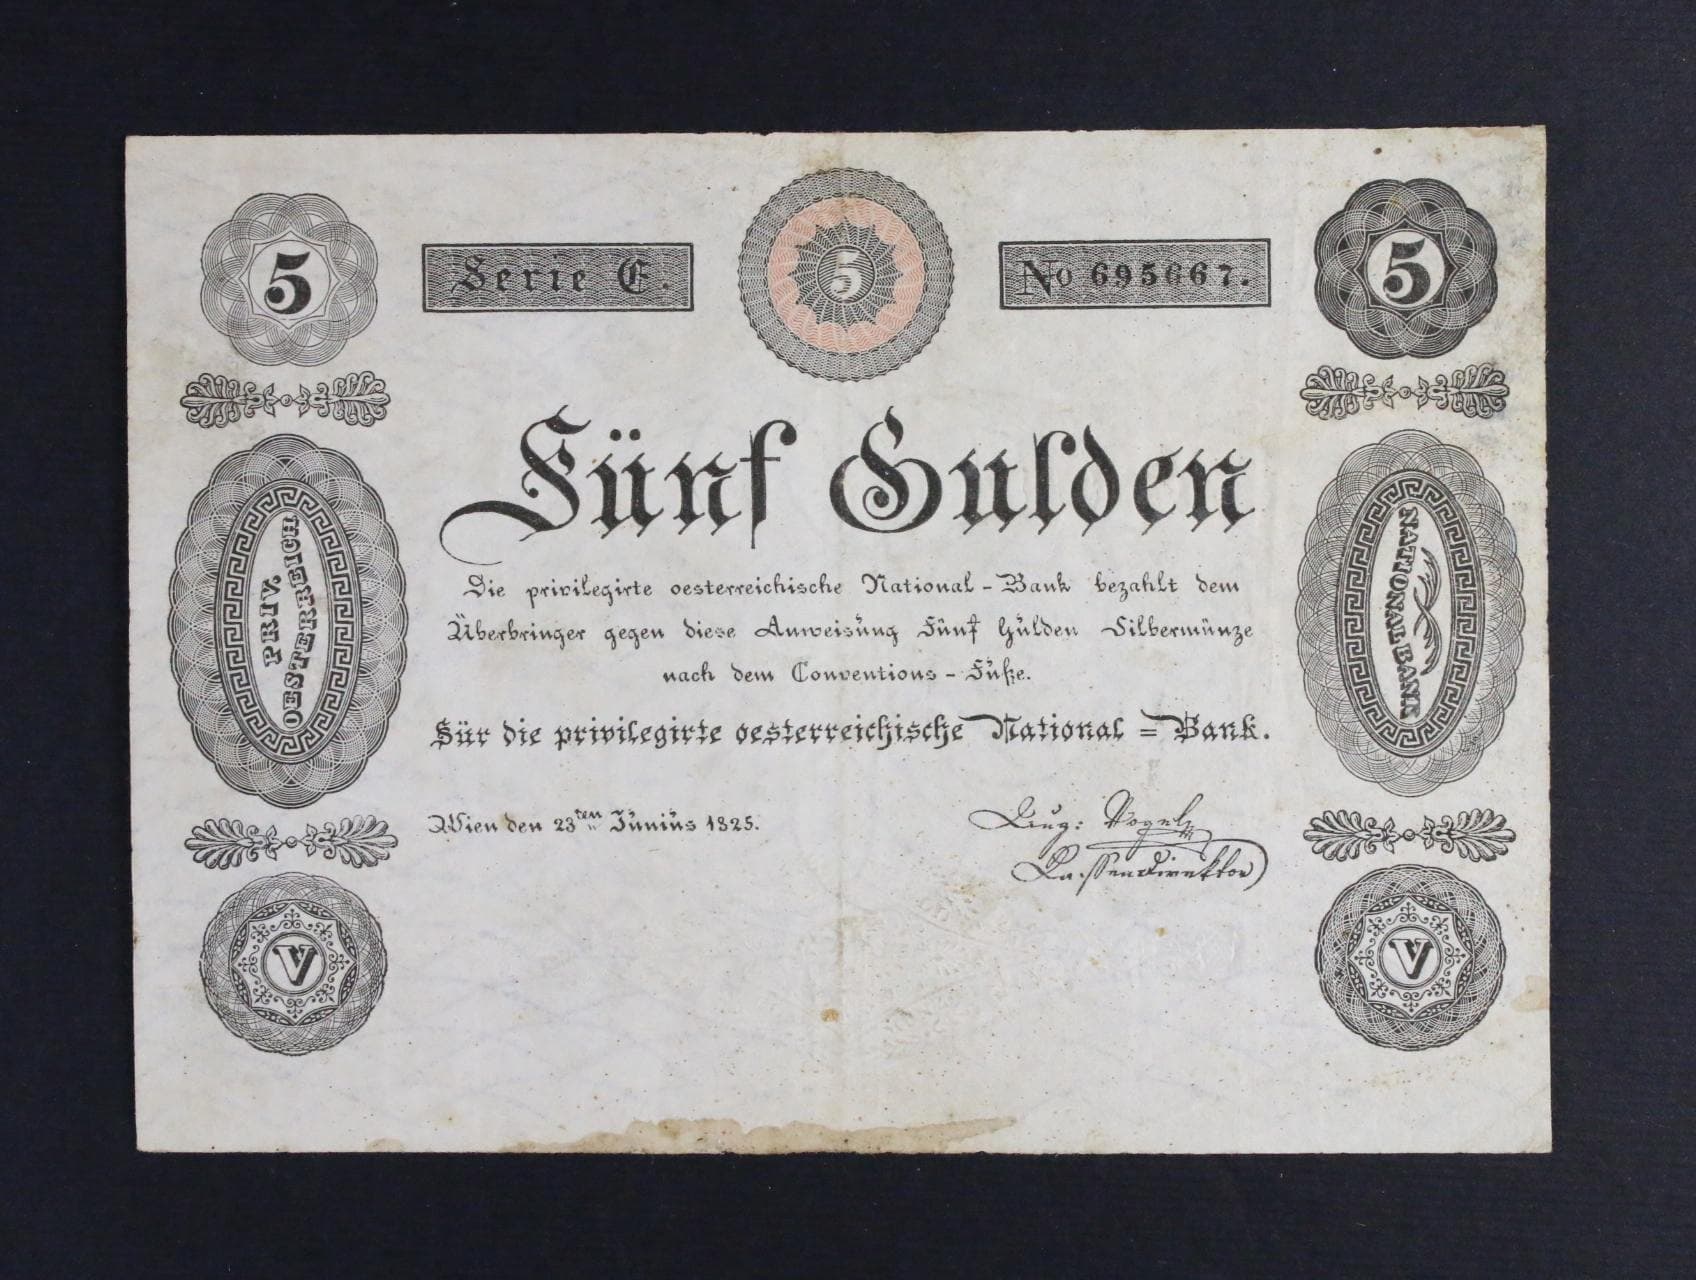 5
Serie E.
5
No 695667.
5
Fünf Gulden
Die privilegirte oesterreichische National-Bank bezahlt dem
Überbringer gegen diese Anweisung Fünf Gulden Silbermünze
nach dem Conventions-Fuße.
Für die privilegirte oesterreichische National=Bank.
Wien den 23ten Junius 1825.
Vogel
Kassendirektor
PRIV.
OESTERREICH
NATIONAL BANK
V
V